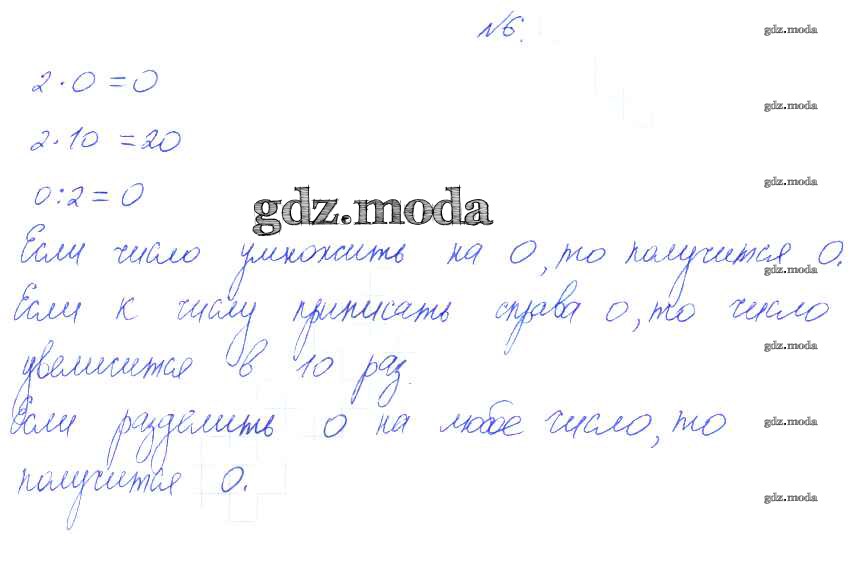 №6.
gdz.moda
2·0=0
gdz.moda
2·10=20
gdz.moda
0:2=0
gdz.moda
Если число умножить на 0, то получится 0.
gdz.moda
Если к числу приписать справа 0, то число
gdz.moda
увеличится в 10 раз.
Если разделить 0 на любое число, то
gdz.moda
получится 0.
gdz.moda